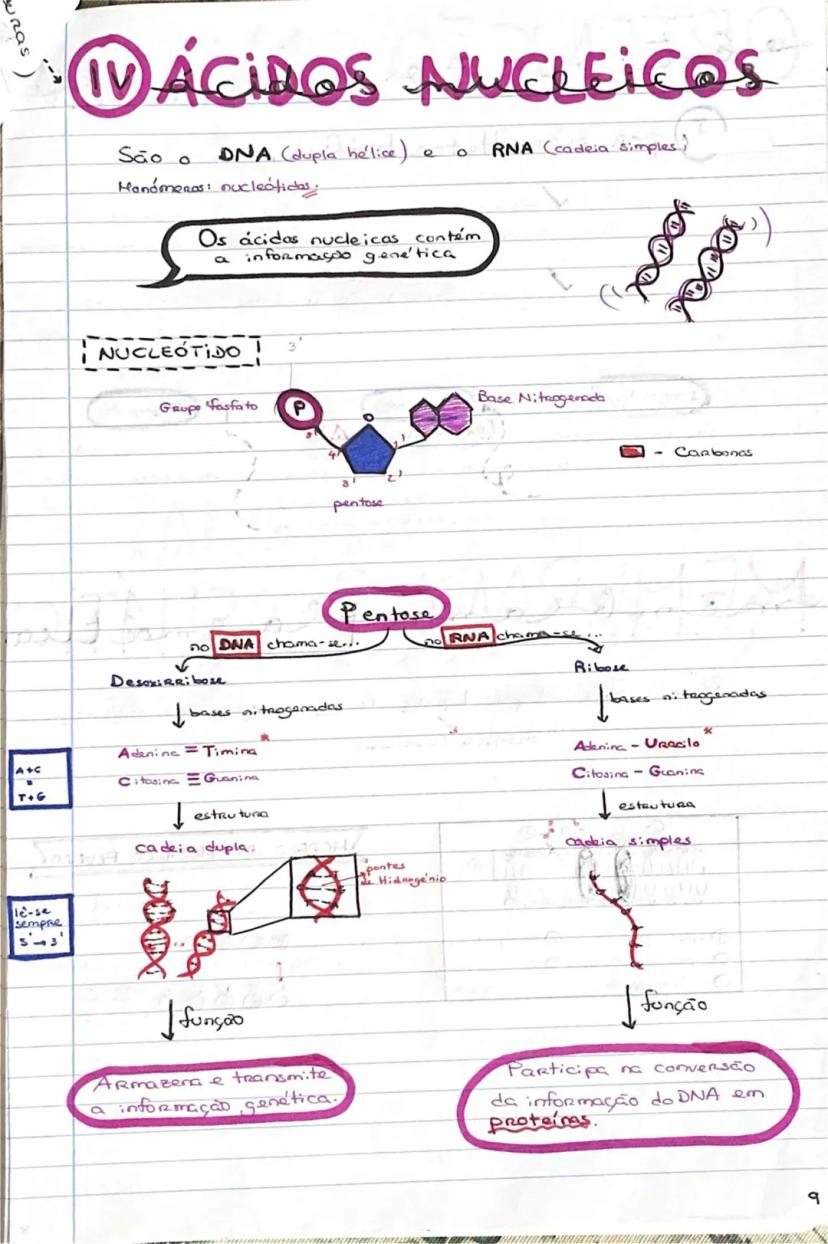 URAS)
IV ÁCIDOS NUCLEICOS
ácidos nucleicos
São o DNA (dupla hélice) e o RNA (cadeia simples)
Monómeros: nucleótidos.
Os ácidos nucleicos contém
a informação genética
NUCLEÓTIDO
3'
Grupo fosfato
P
Base Nitrogenada
O
5'
4'
1'
3'
2'
pentose
- Carbonos
Pentose
no DNA chama-se...
no RNA chama-se...
Desoxirribose
Ribose
bases nitrogenadas
bases nitrogenadas
Adenina = Timina *
Adenina - Uracilo *
Citosina ≡ Guanina
Citosina - Guanina
A+C
=
T+G
estrutura
estrutura
cadeia dupla
cadeia simples
pontes
de Hidrogénio
lê-se
sempre
5' → 3'
função
função
Armazena e transmite
a informação genética.
Participa na conversão
da informação do DNA em
proteínas.
9